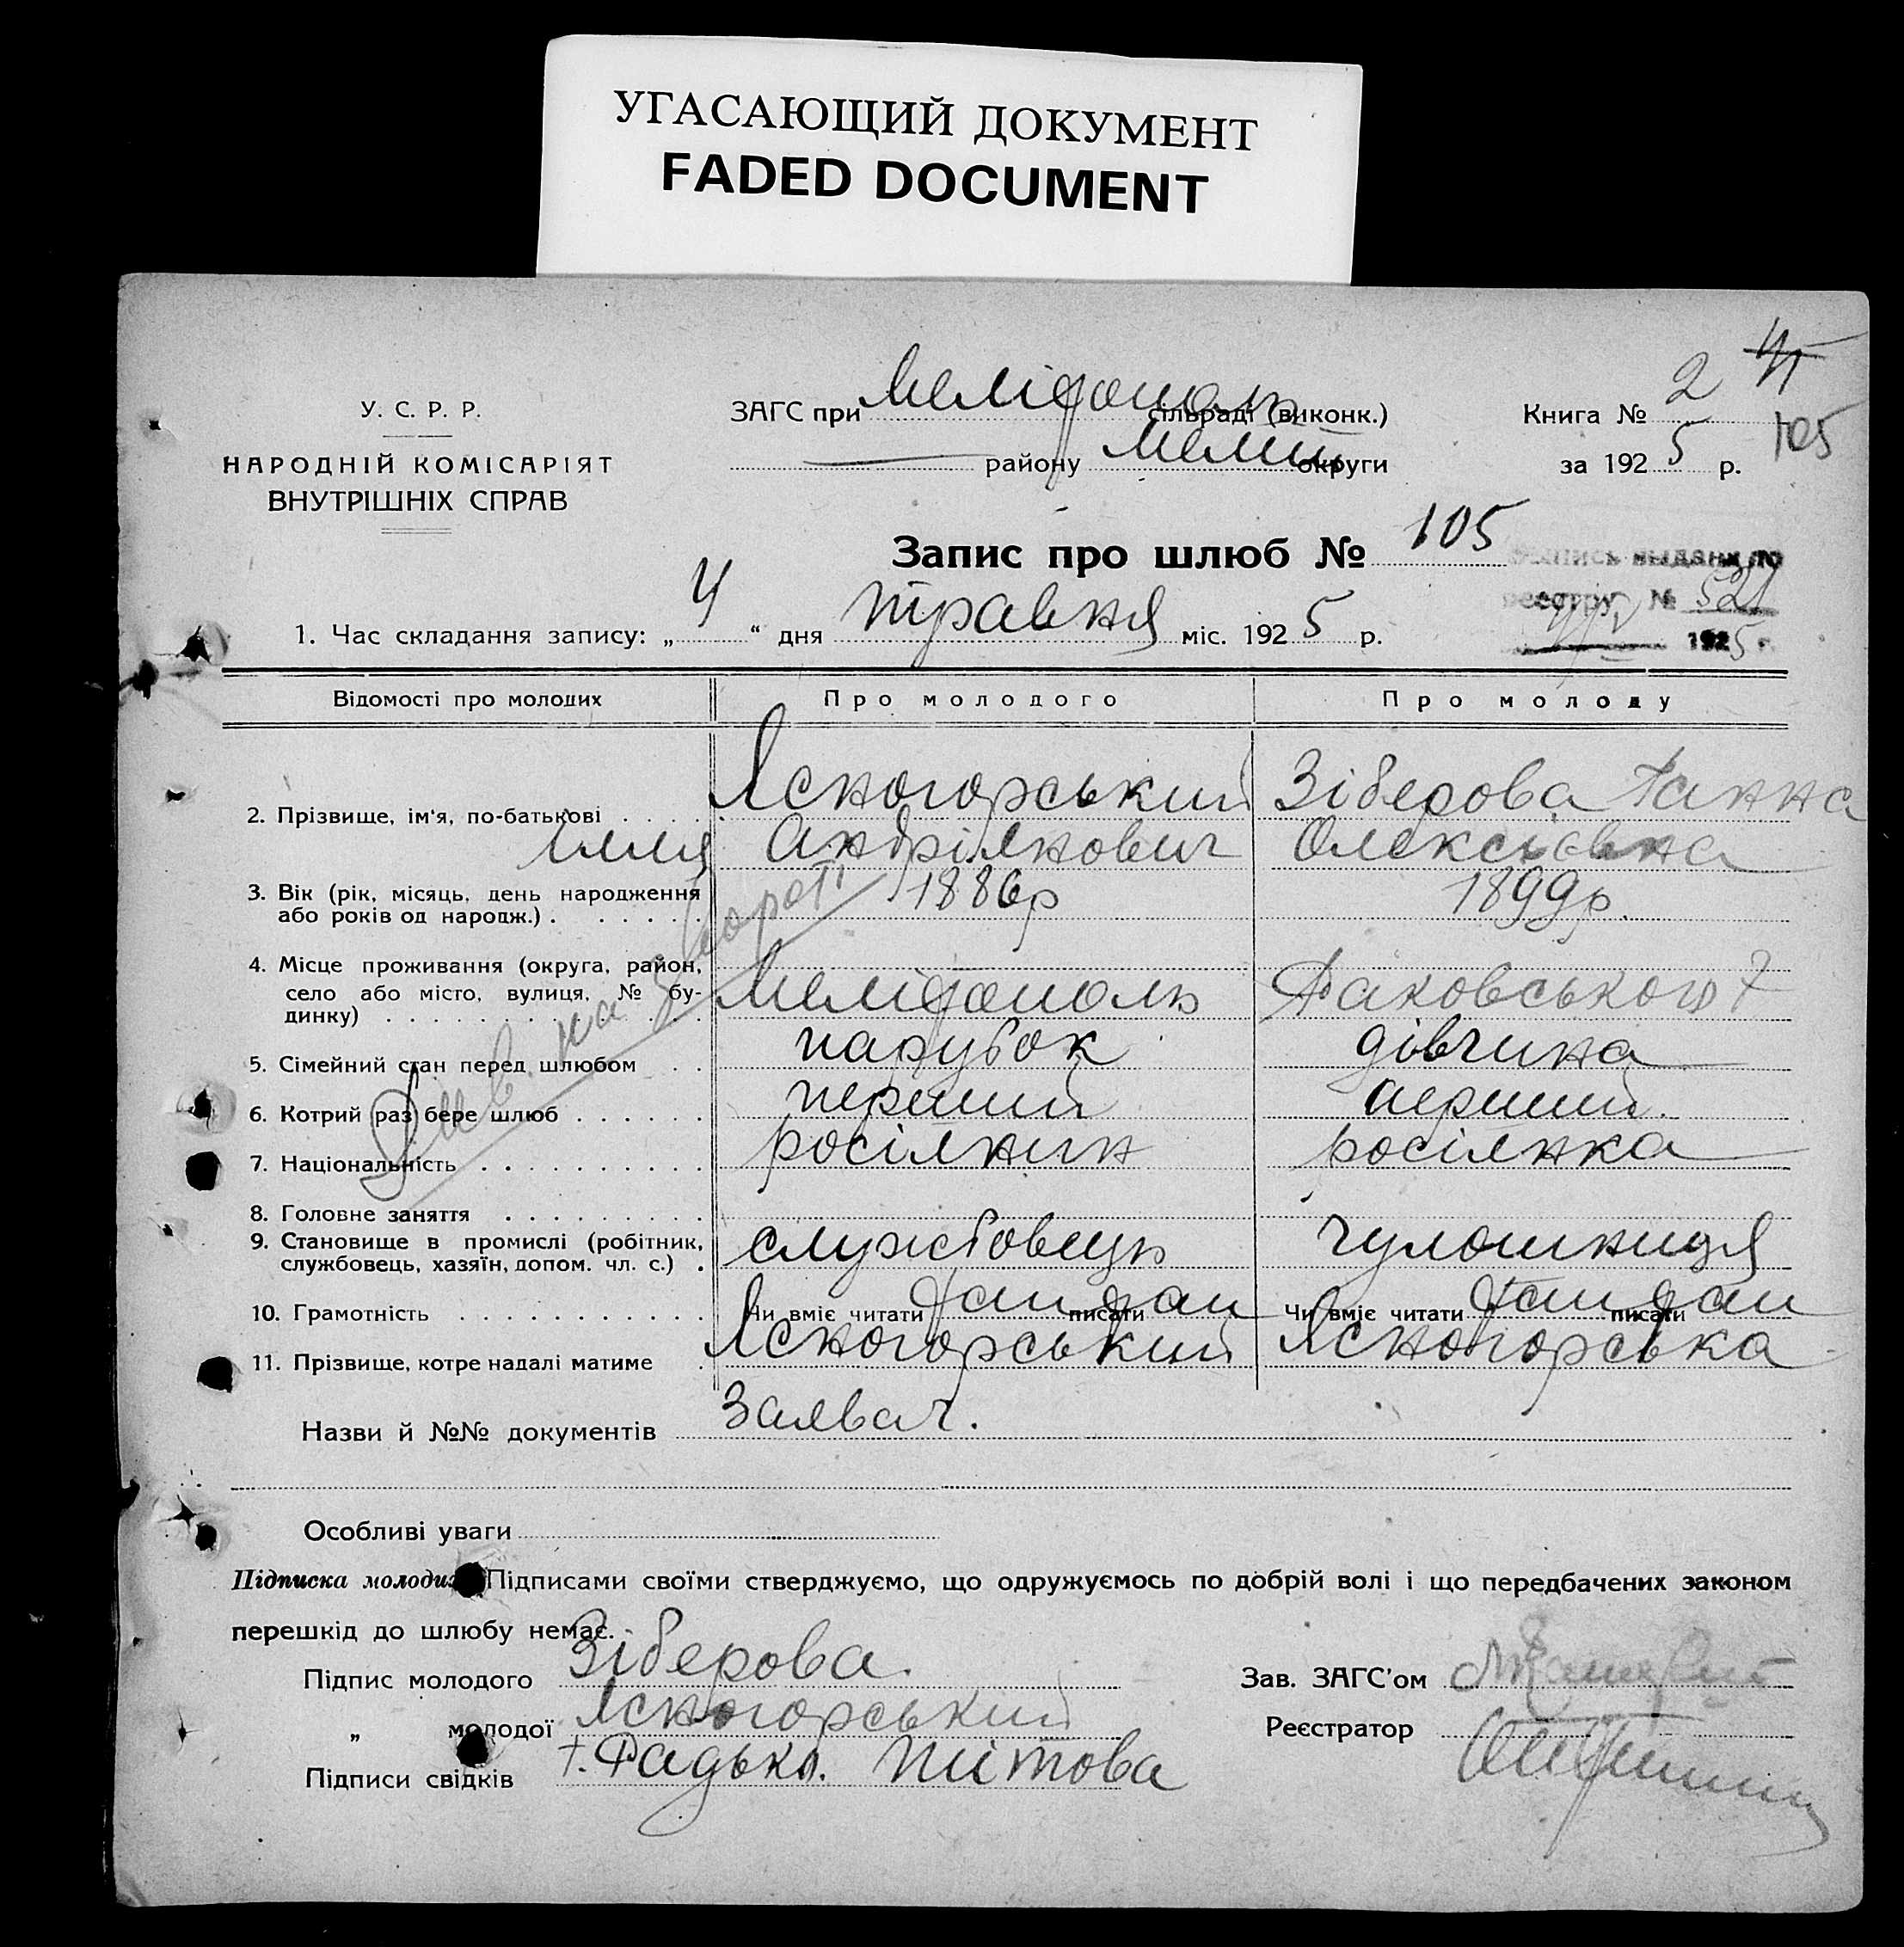 УГАСАЮЩИЙ ДОКУМЕНТ
FADED DOCUMENT
У. С. Р. Р.
НАРОДНІЙ КОМІСАРІЯТ
ВНУТРІШНІХ СПРАВ
ЗАГС при Мелітополь сільраді (виконк.)
району Меліт округи
Книга № 2
за 1925 р.
105
Запис про шлюб № 105
выдана по
реестру № 521
1925 г.
1. Час складання запису: „4“ дня травня міс. 1925 р.
Відомості про молодих Про молодого Про молоду
2. Прізвище, ім'я, по-батькові . . . . Ясногорський Зіберова Ганна
Илля Андріянович Олексіівна
3. Вік (рік, місяць, день народження
або років од народж.) . . . . . . 1886р 1899р.
4. Місце проживання (округа, район,
село або місто, вулиця, № бу-
динку) . . . . . . . . . . . Мелітополь Раковського 7
5. Сімейний стан перед шлюбом . . парубок дівчина
6. Котрий раз бере шлюб . . . . . . перший перший
7. Національність . . . . . . . . . . росіянин росіянка
8. Головне заняття . . . . . . . . .
9. Становище в промислі (робітник,
службовець, хазяїн, допом. чл. с.) . службовець чулошниця
10. Грамотність . . . . . . . . . . . Чи вміє читати так писати так Чи вміє читати так писати так
11. Прізвище, котре надалі матиме . Ясногорський Ясногорська
Див. на звороті
Назви й №№ документів Заявач.
Особливі уваги
Підписка молодих Підписами своїми стверджуємо, що одружуємось по добрій волі і що передбачених законом
перешкід до шлюбу немає.
Підпис молодого Зіберова. Зав. ЗАГС'ом
„ молодої Ясногорський Реєстратор
Підписи свідків Титова